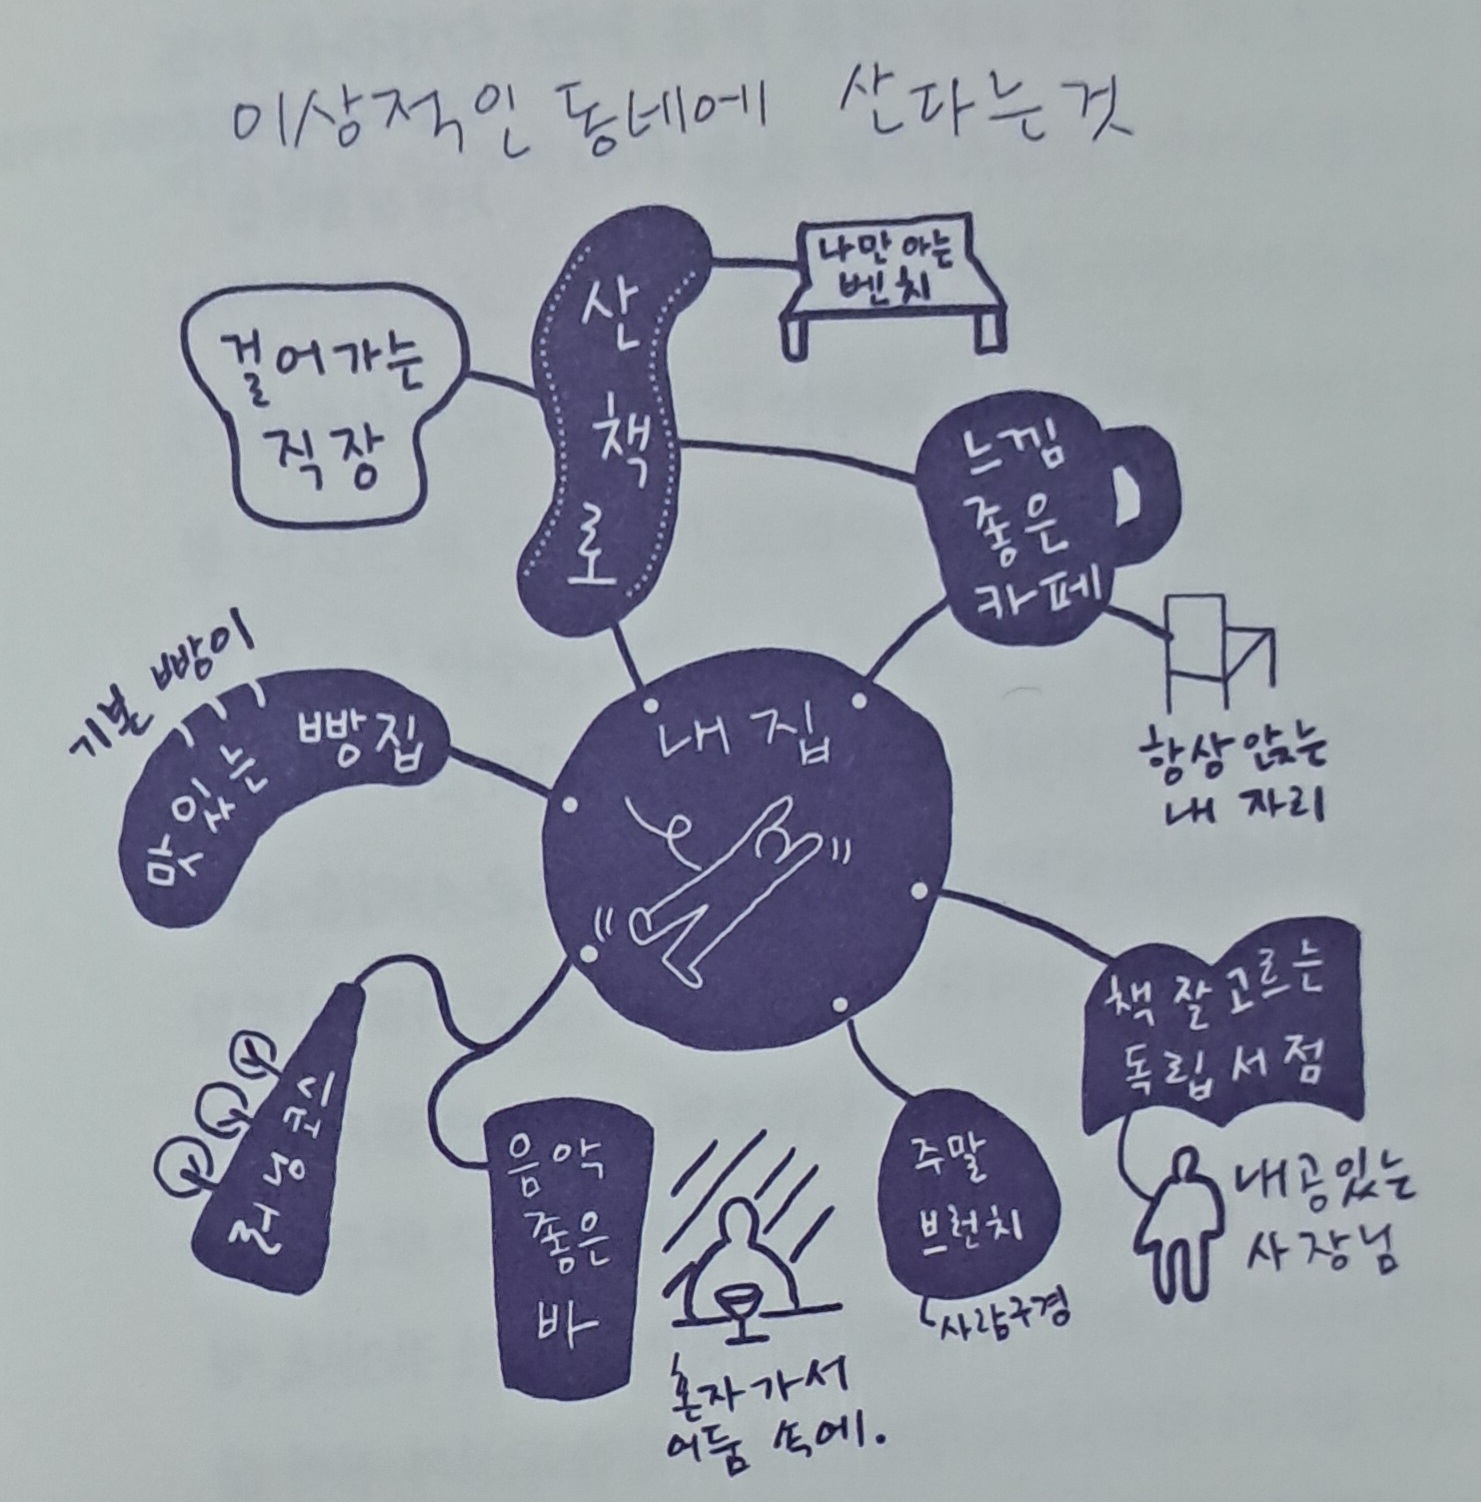 이상적인 동네에 산다는 것
나만 아는
벤치
산책로
걸어가는
직장
느낌
좋은
카페
항상 앉는
내 자리
기본 빵이
맛있는 빵집
내 집
책 잘 고르는
독립서점
내공있는
사장님
주말
브런치
사람구경
러닝코스
음악
좋은
바
혼자 가서
어둠 속에.